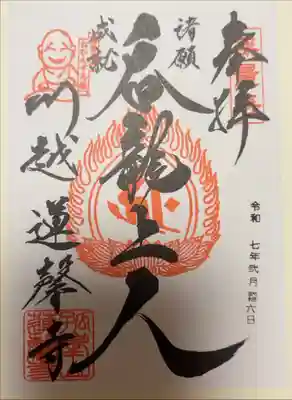 奉拝
諸願
成就
呑龍上人
川越 蓮馨寺
令和 七年 弐月 六日